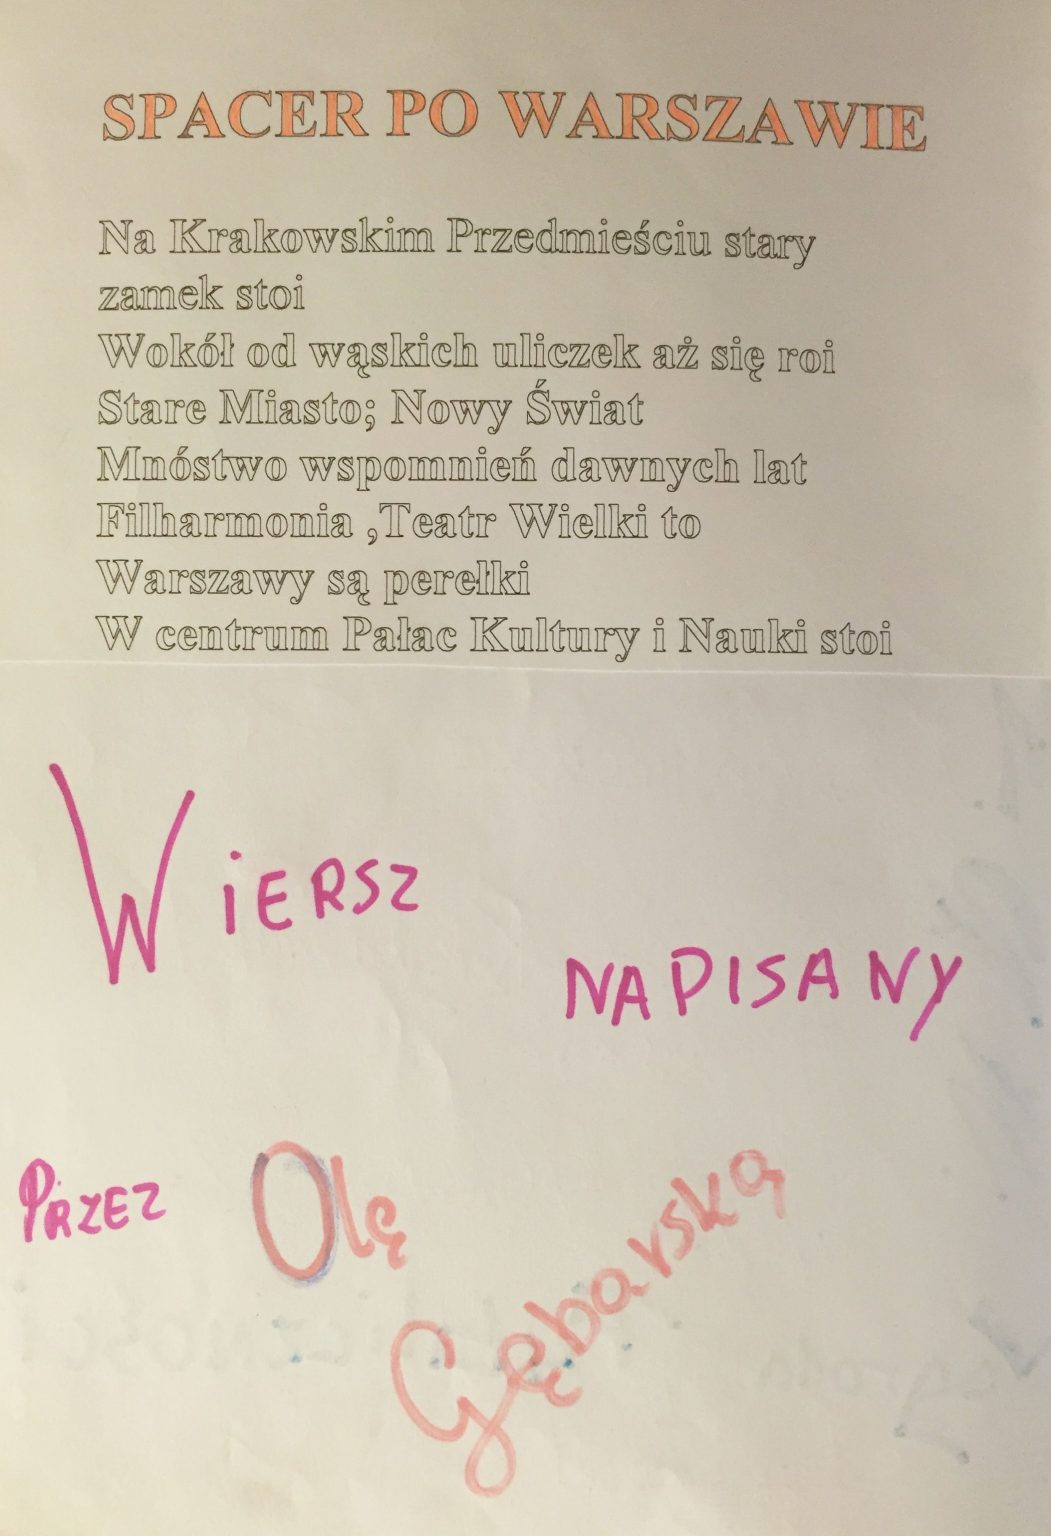 SPACER PO WARSZAWIE
Na Krakowskim Przedmieściu stary
zamek stoi
Wokół od wąskich uliczek aż się roi
Stare Miasto; Nowy Świat
Mnóstwo wspomnień dawnych lat
Filharmonia ,Teatr Wielki to
Warszawy są perełki
W centrum Pałac Kultury i Nauki stoi
WiERSZ
NAPISANY
PRZEZ Olę
Gębarską